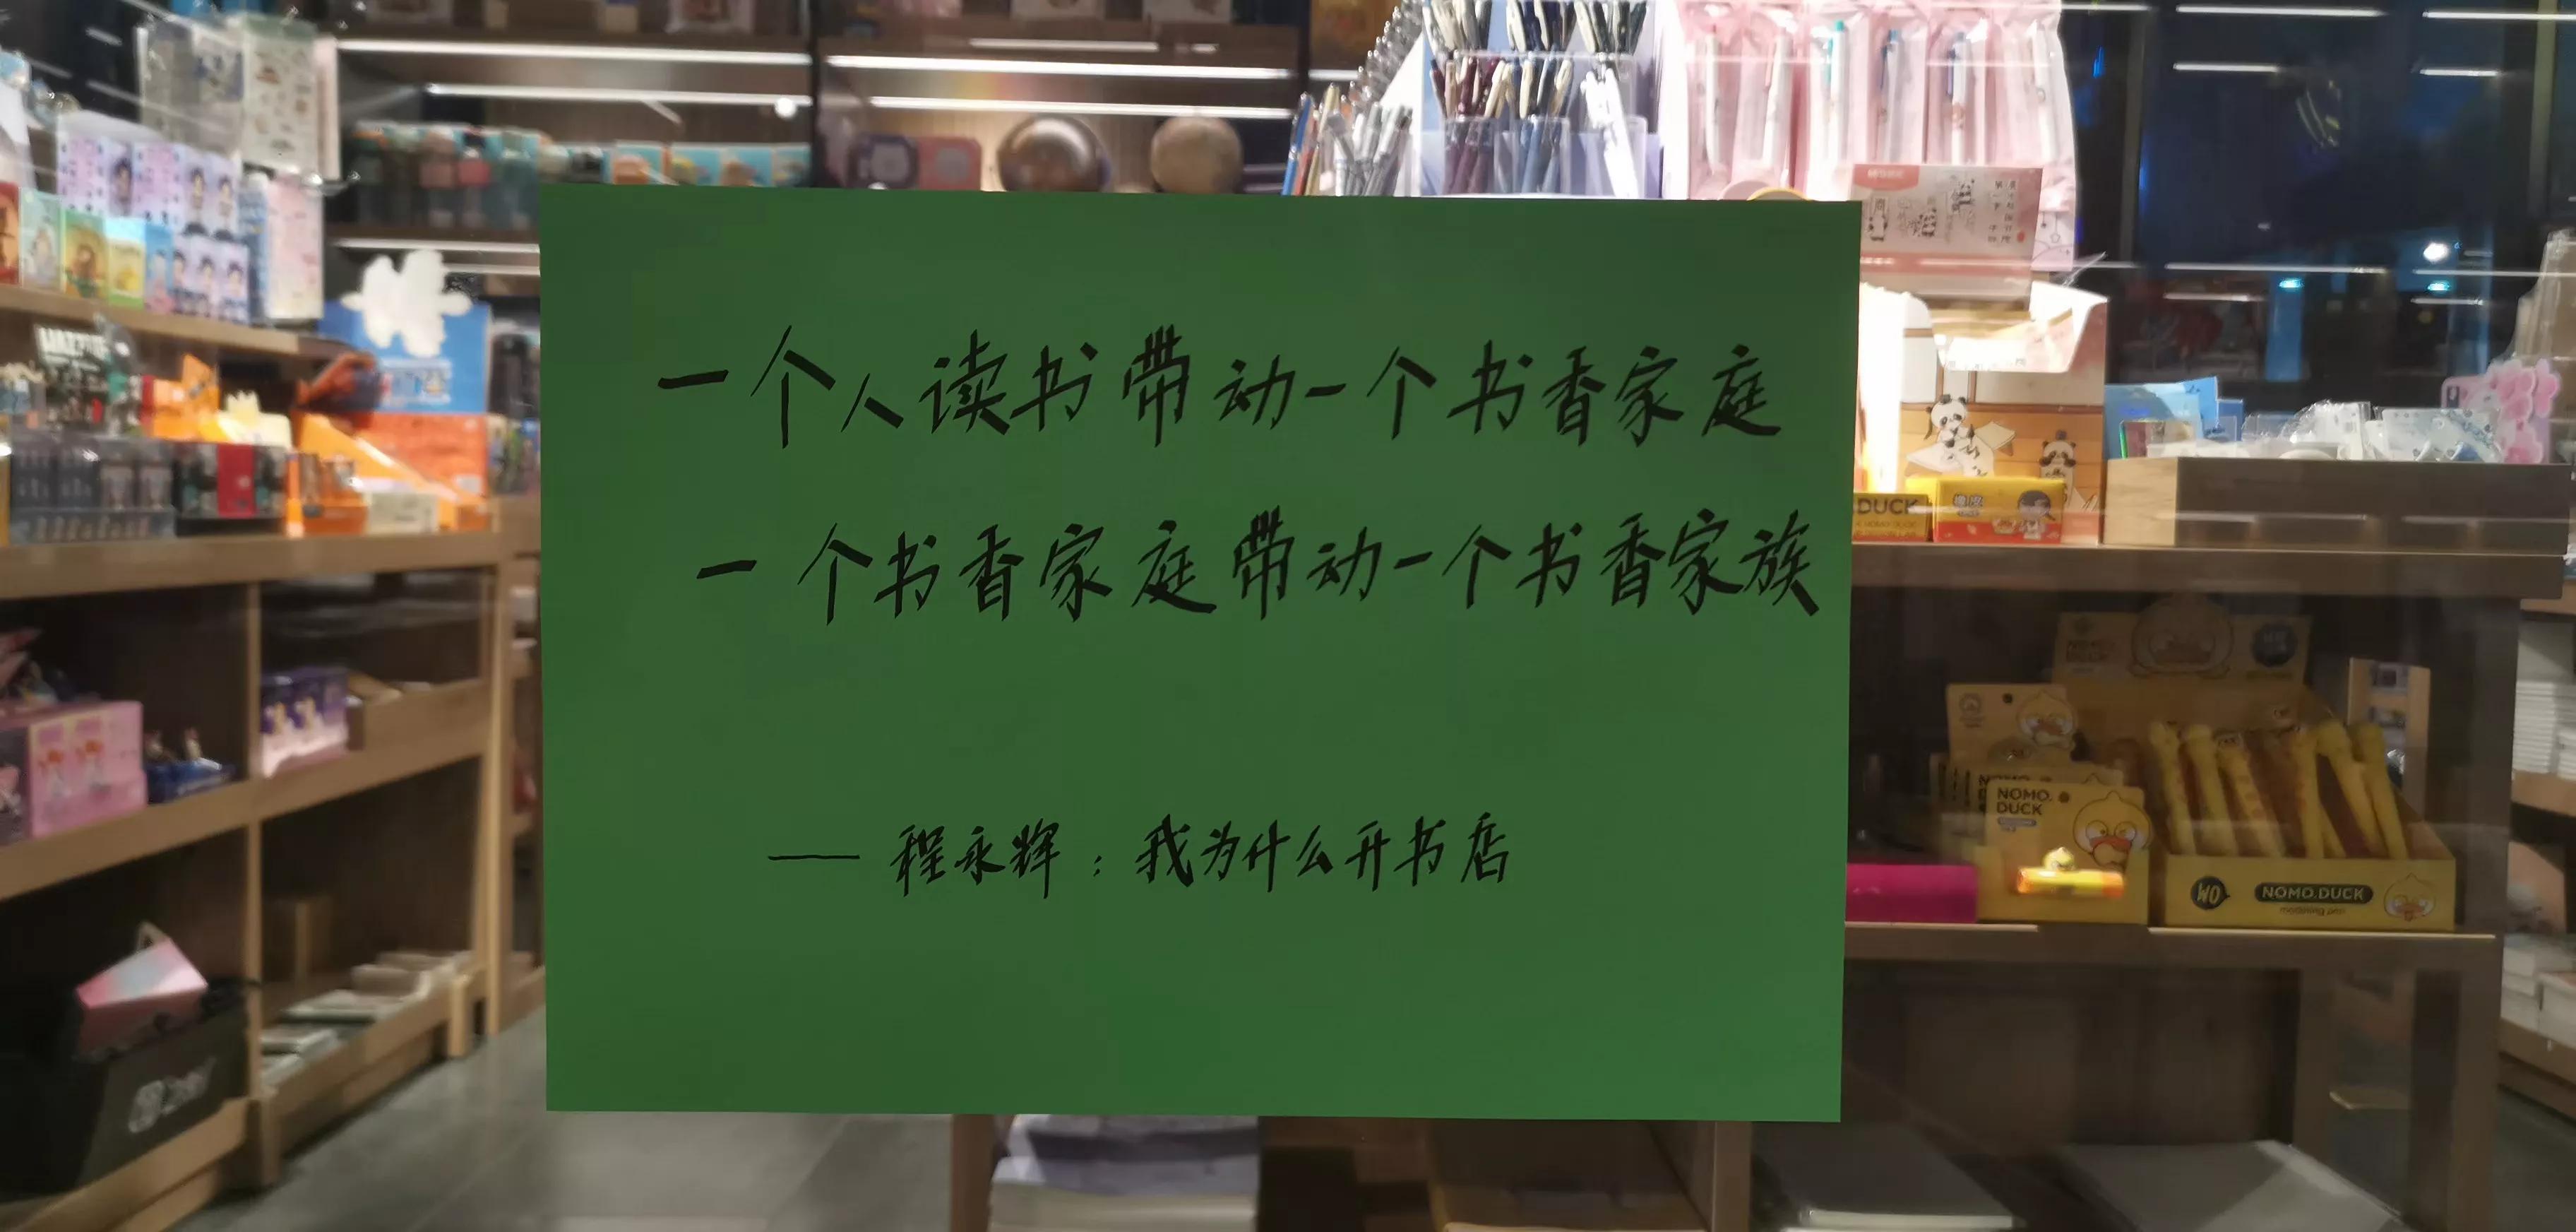 一个人读书带动一个书香家庭
一个书香家庭带动一个书香家族
—— 程永辉：我为什么开书店
DUCK
橡皮
NOMO.
DUCK
NOMO.
DUCK
WO
NOMO.DUCK
modeling pen